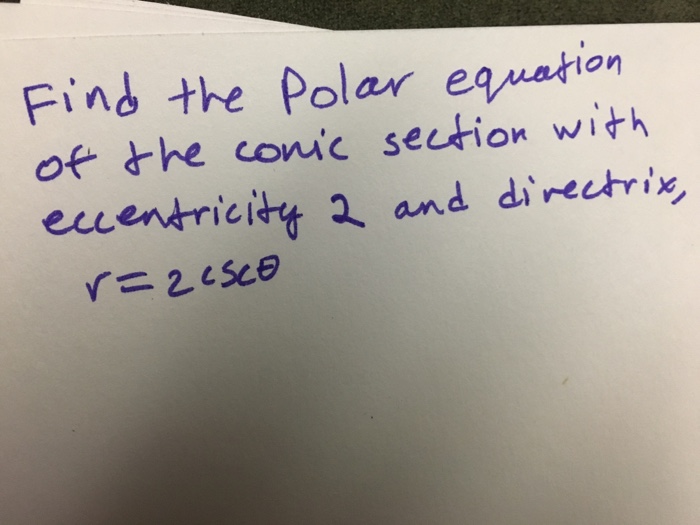 Find the Polar equation
of the conic section with
eccentricity 2 and directrix,
r=2cscθ